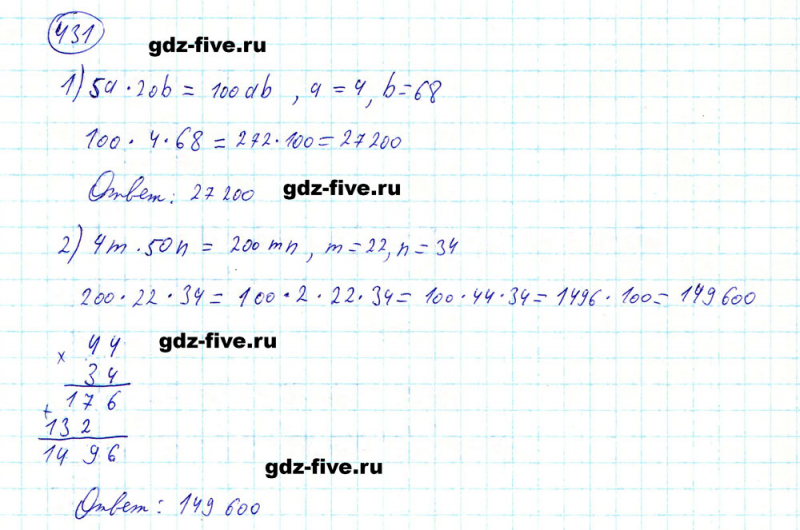 431
gdz-five.ru
1) 5a · 20b = 100ab , a = 4, b = 68
100 · 4 · 68 = 272 · 100 = 27200
Ответ: 27200
gdz-five.ru
2) 4m · 50n = 200mn , m = 22, n = 34
200 · 22 · 34 = 100 · 2 · 22 · 34 = 100 · 44 · 34 = 1496 · 100 = 149600
× 44
gdz-five.ru
34
176
+ 132
1496
gdz-five.ru
Ответ: 149600